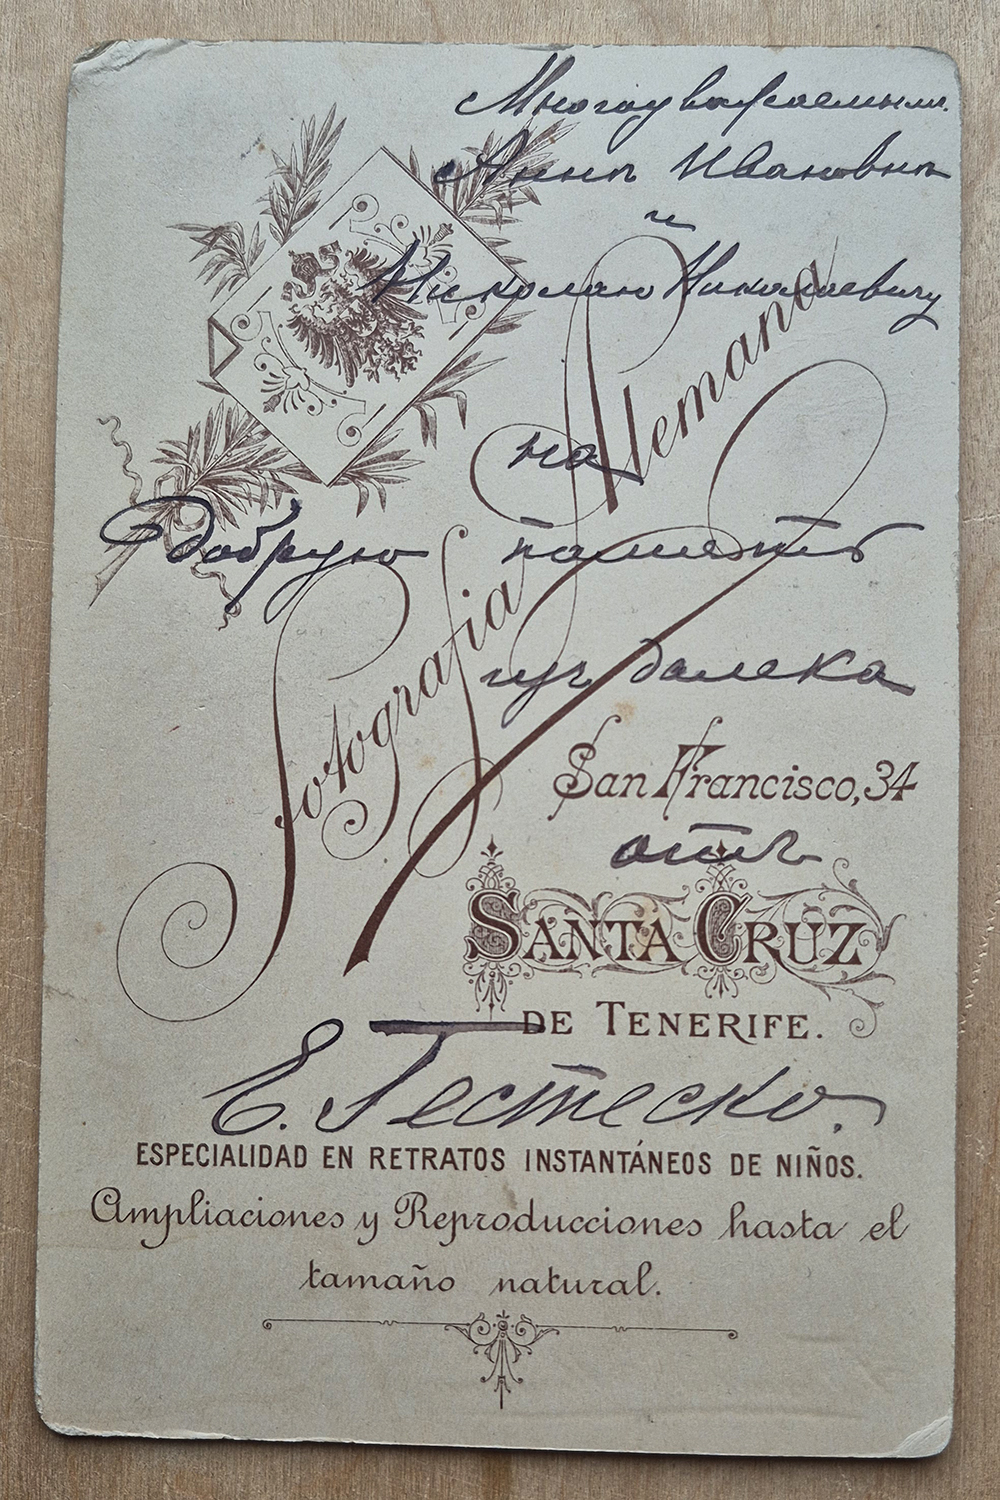 Многоуважаемымъ
Аннѣ Ивановнѣ
и
Николаю Николаевичу
на
добрую память
изъ далека
Fotografia Alemana
San Francisco, 34
отъ
SANTA CRUZ
DE TENERIFE.
Е. Гестеско.
ESPECIALIDAD EN RETRATOS INSTANTÁNEOS DE NIÑOS.
Ampliaciones y Reproducciones hasta el
tamaño natural.